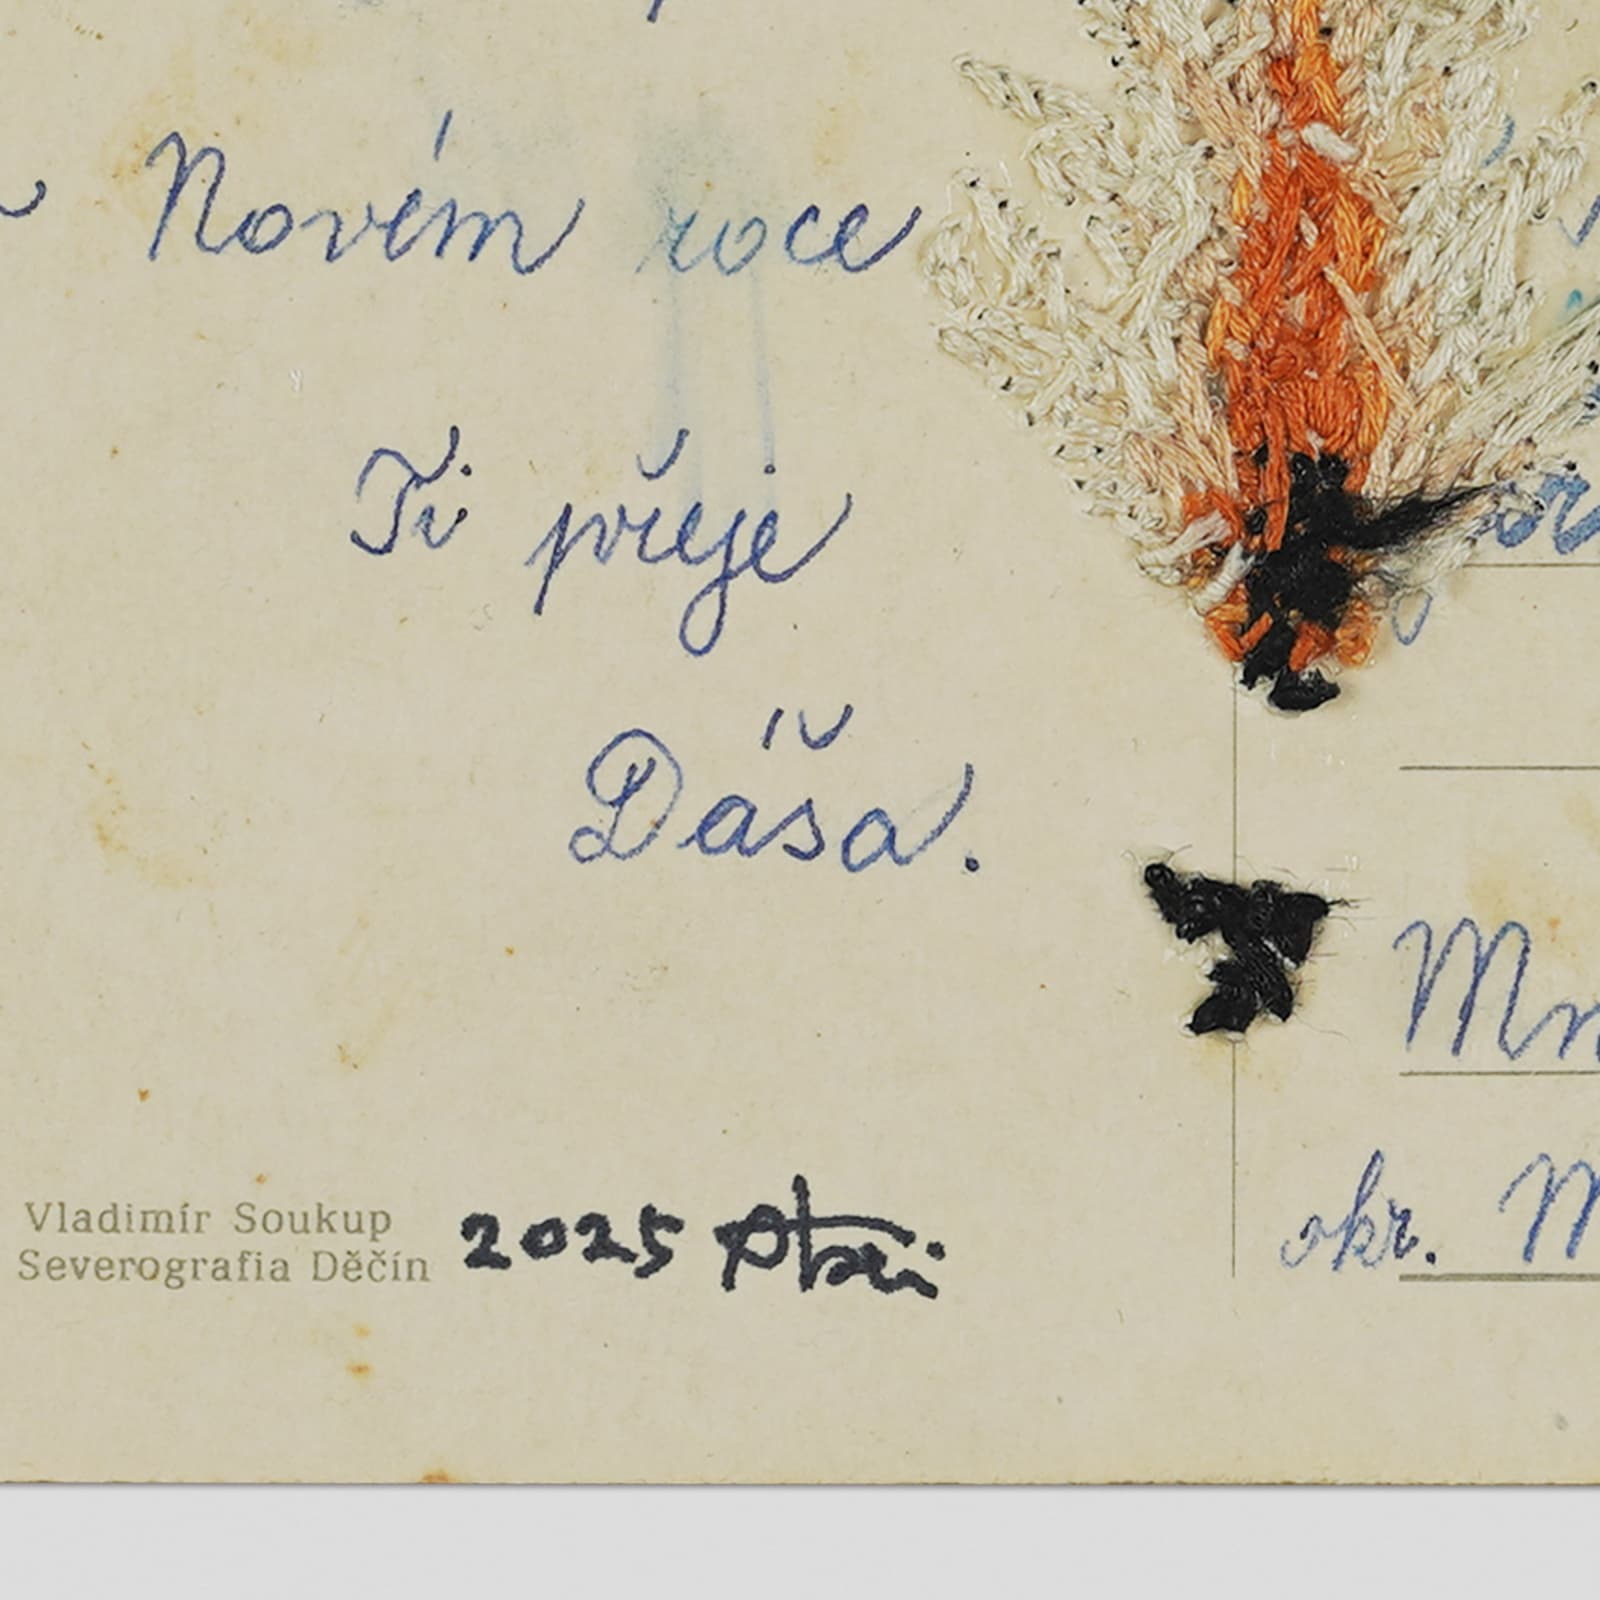 Novém roce
Ti přeje
Dáša.
okr. M
Vladimír Soukup
Severografia Děčín
2025